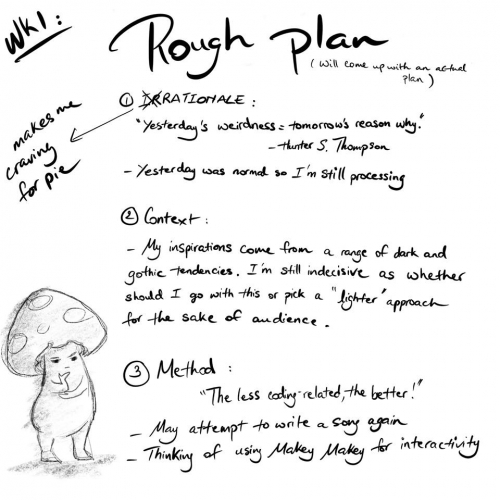 Wk1:
Rough plan
(Will come up with an actual
plan)
① RATIONALE:
makes me
craving
for pie
"Yesterday's weirdness = tomorrow's reason why."
- Hunter S. Thompson
- Yesterday was normal so I'm still processing
② Context:
- My inspirations come from a range of dark and
gothic tendencies. I'm still indecisive as whether
should I go with this or pick a "lighter" approach
for the sake of audience.
③ Method:
"The less coding-related, the better!"
- May attempt to write a song again
- Thinking of using Makey Makey for interactivity